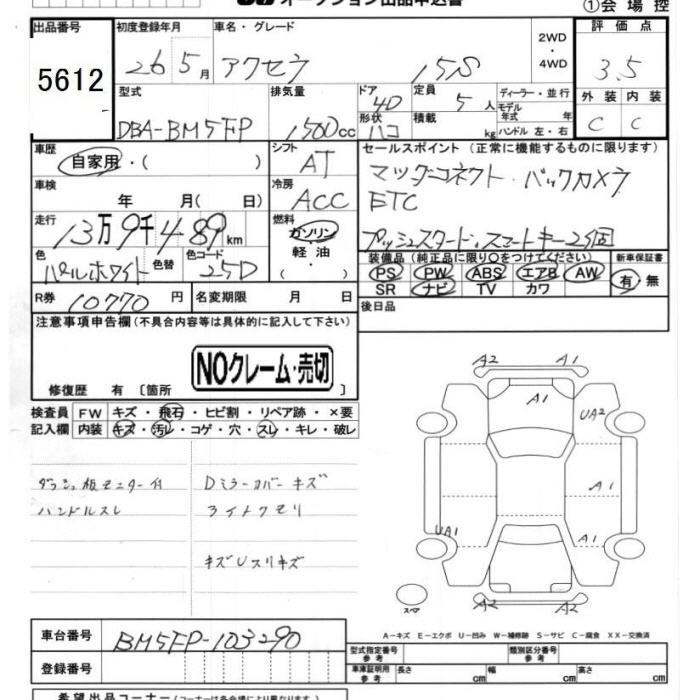 オークション出品申込書 ①会場控
出品番号 初度登録年月 車名・グレード 2WD・4WD 評価点
5612 26 5月 アクセラ 15S 3.5
型式 排気量 ドア 4D 定員 5人 ディーラー・並行 外装 内装
DBA-BM5FP 1500cc 形状 ハコ 積載 kg モデル年式 年 ハンドル 左・右 C C
車歴 自家用・( ) シフト AT セールスポイント (正常に機能するものに限ります)
車検 年 月( 日) 冷房 ACC マツダコネクト・バックカメラ
ETC
走行 13万9千489km 燃料 ガソリン・軽油・( ) プッシュスタート、スマートキー2個
色 パールホワイト 色替 色コード 25D 装備品 (純正品に限り○をつけてください) 新車保証書
PS PW ABS エアB AW 有・無
SR ナビ TV カワ
R券 10770円 名変期限 月 日 後日品
注意事項申告欄 (不具合内容等は具体的に記入して下さい)
NOクレーム・売切
修復歴 有 〔箇所 〕
検査員 FW キズ・飛石・ヒビ割・リペア跡・×要
記入欄 内装 キズ・汚レ・コゲ・穴・スレ・キレ・破レ
ダッシュ板モニター付 Dミラーカバーキズ
ハンドルスレ ライトクモリ
キズUスリキズ
A2 A1
A1 UA2
A1
UA1 A1
A2 A2
スペア
A-キズ E-エクボ U-凹み W-補修跡 S-サビ C-腐食 XX-交換済
車台番号 BM5FP-103290 型式指定番号 参考 類別区分番号 参考
登録番号 車庫証明用 参考 長さ cm 幅 cm 高さ cm
希望出品コーナー